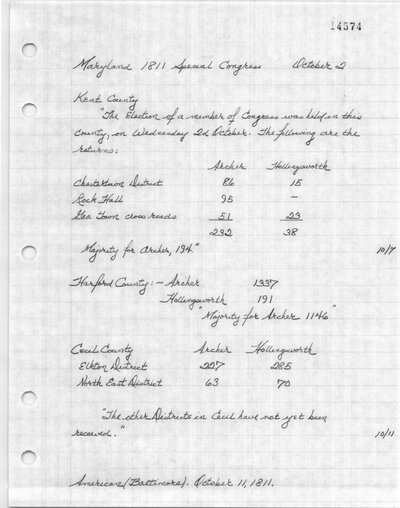 14574
Maryland 1811 Special Congress October 2
Kent County
"The Election of a member of Congress was held in this
county, on Wednesday 2d October. The following are the
returns:
Archer Hollingsworth
Chestertown District 86 15
Rock Hall 95 —
Geo Town cross roads 51 23
232 38
Majority for Archer, 194." 10/7
Harford County: — Archer 1337
Hollingsworth 191
"Majority for Archer 1146"
Cecil County Archer Hollingsworth
Elkton District 227 285
North East District 63 70
"The other Districts in Cecil have not yet been
received." 10/11
American (Baltimore). October 11, 1811.